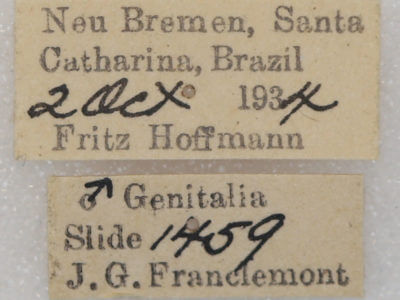 Neu Bremen, Santa
Catharina, Brazil
2 Oct 1934
Fritz Hoffmann
♂ Genitalia
Slide 1459
J. G. Franclemont